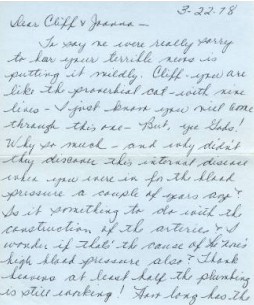 3-22-78
Dear Cliff & Joanna -
To say we were really sorry
to har your terrible news is
putting it mildly. Cliff - you are
like the proverbial cat - with nine
lives - I just know you will come
through this one - But, ye Gods!
Why so much - and why didn't
they discover this internal disease
when you were in for the blood
pressure a couple of years ago?
Is it something to do with the
construction of the arteries? I
wonder if that's the cause of
high blood pressure also? Thank
heavens at least half the plumbing
is still working! How long has the